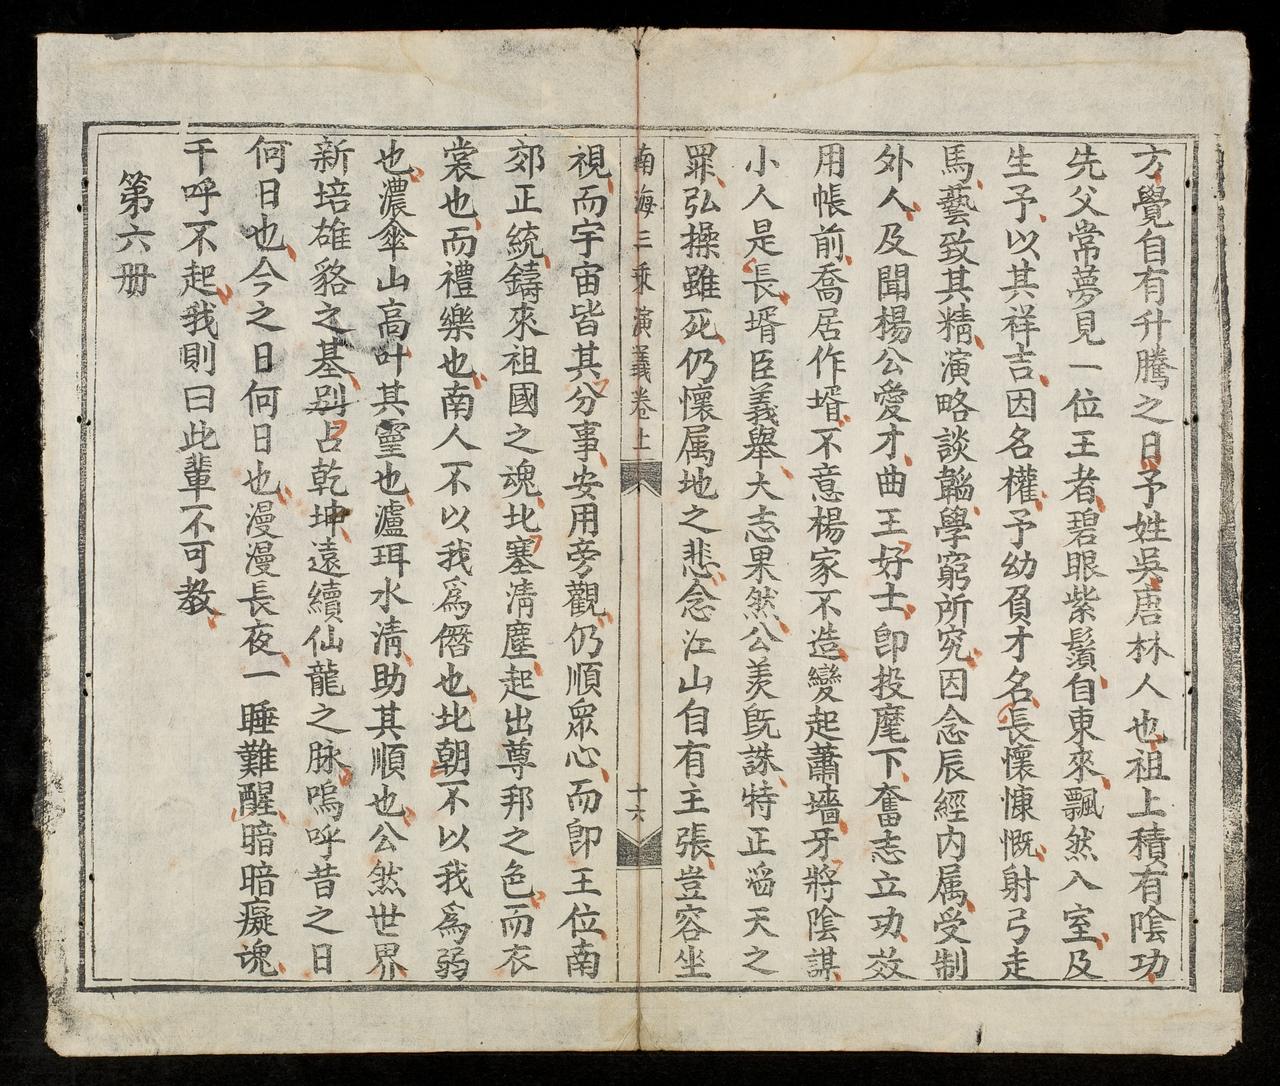 方覺自有升騰之日予姓吳唐林人也祖上積有陰功
先父常夢見一位王者碧眼紫鬚自東來飄然入室及
生予以其祥吉因名權予幼負才名長懷慷慨射弓走
馬藝致其精演略談韜學窮所究因念辰經內属受制
外人及聞楊公愛才曲王好士卽投麾下奮志立功效
用帳前喬居作壻不意楊家不造變起蕭墻牙將陰謀
小人是長壻臣義舉大志果然公羡旣誅特正滔天之
罪弘操雖死仍懷属地之悲念江山自有主張豈容坐
南海三乘演義卷上
十六
視而宇宙皆其分事安用旁觀仍順衆心而卽王位南
郊正統鑄來祖國之魂北塞清塵起出尊邦之色而衣
裳也而禮樂也南人不以我爲僭也北朝不以我爲弱
也濃傘山高叶其靈也瀘珥水清助其順也公然世界
新培雄貉之基別占乾坤遠續仙龍之脉嗚呼昔之日
何日也今之日何日也漫漫長夜一睡難醒暗暗癡魂
千呼不起我則曰此輩不可教
第六册